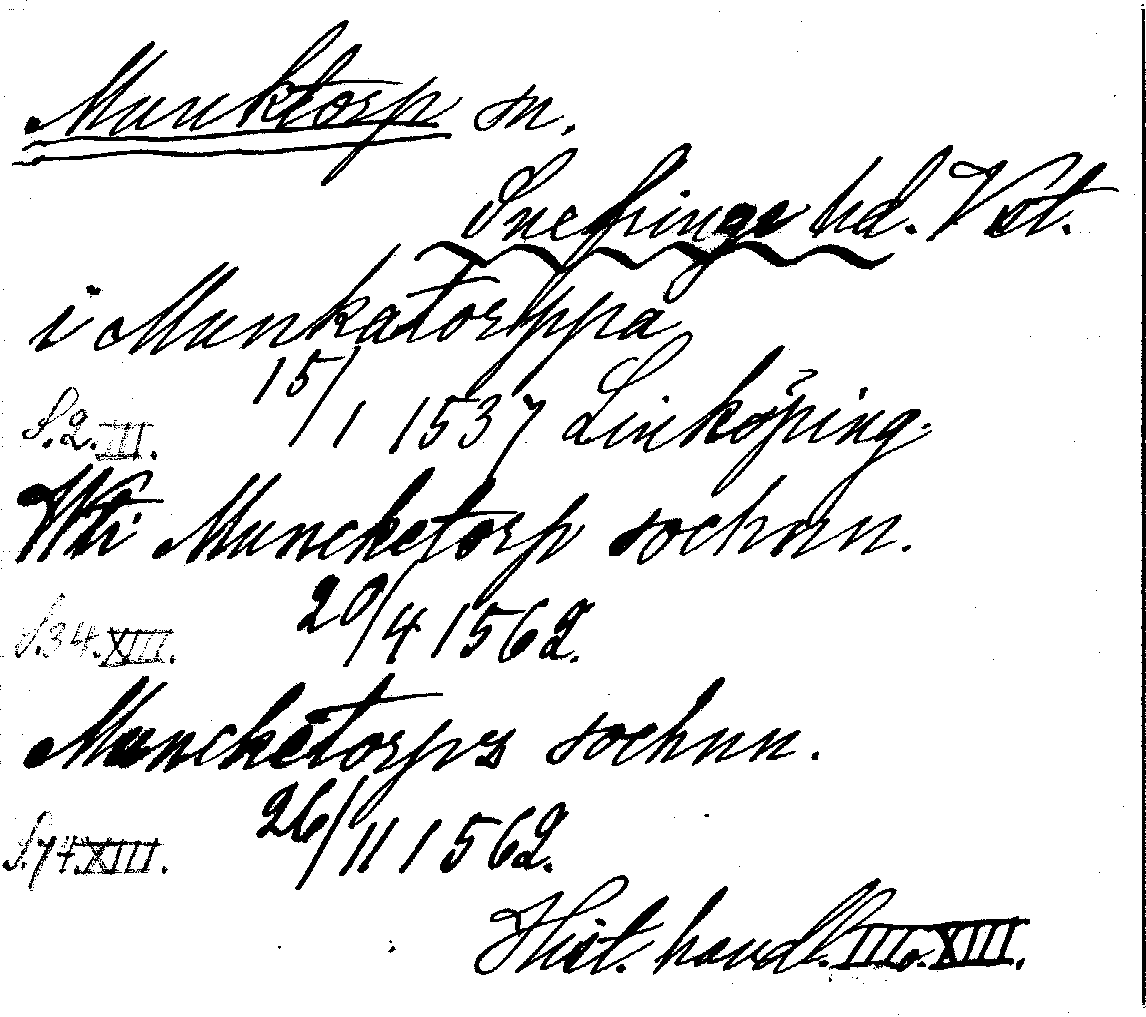 Munktorp sn.
Snefringe hd. Vst.
i Munkatorppa
15/1 1537 Linköping.
S. 2. III.
Wti Muncketorp sochnn.
20/4 1562.
S. 34. XIII.
Muncketorps sochnn.
26/11 1562.
S. 74. XIII.
Hist. handl. III o. XIII.